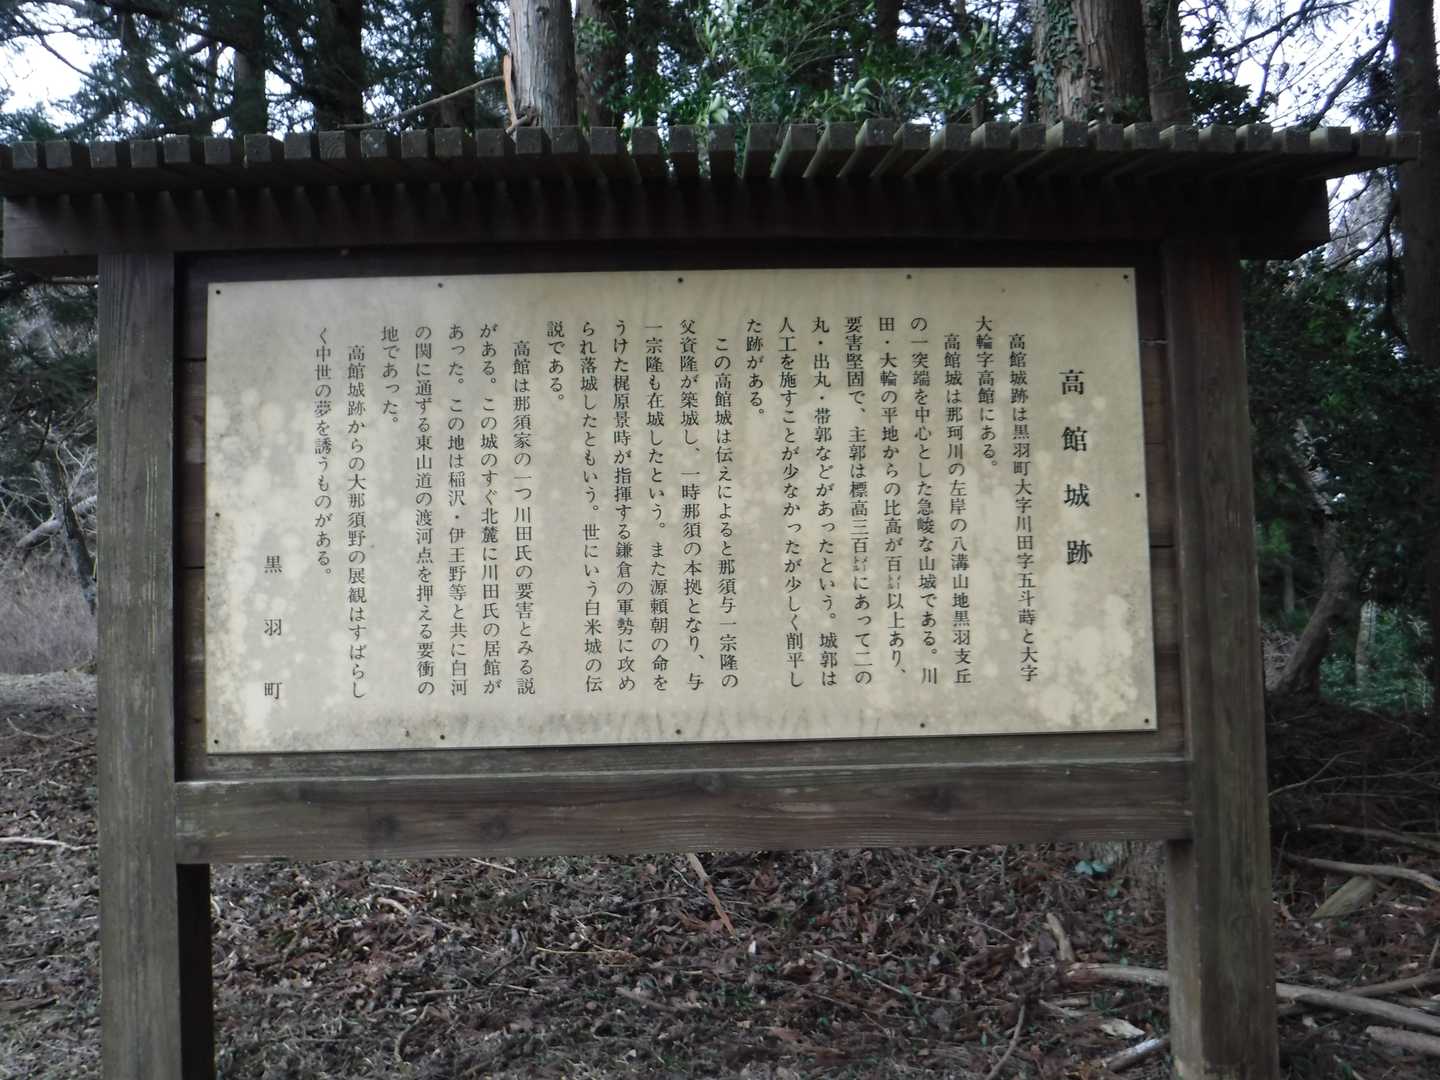 高館城跡
高館城跡は黒羽町大字川田字五斗蒔と大字
大輪字高館にある。
高館城は那珂川の左岸の八溝山地黒羽支丘
の一突端を中心とした急峻な山城である。川
田・大輪の平地からの比高が百㍍以上あり、
要害堅固で、主郭は標高三百㍍にあって二の
丸・出丸・帯郭などがあったという。城郭は
人工を施すことが少なかったが少しく削平し
た跡がある。
この高館城は伝えによると那須与一宗隆の
父資隆が築城し、一時那須の本拠となり、与
一宗隆も在城したという。また源頼朝の命を
うけた梶原景時が指揮する鎌倉の軍勢に攻め
られ落城したともいう。世にいう白米城の伝
説である。
高館は那須家の一つ川田氏の要害とみる説
がある。この城のすぐ北麓に川田氏の居館が
あった。この地は稲沢・伊王野等と共に白河
の関に通ずる東山道の渡河点を押える要衝の
地であった。
高館城跡からの大那須野の展観はすばらし
く中世の夢を誘うものがある。
黒羽町